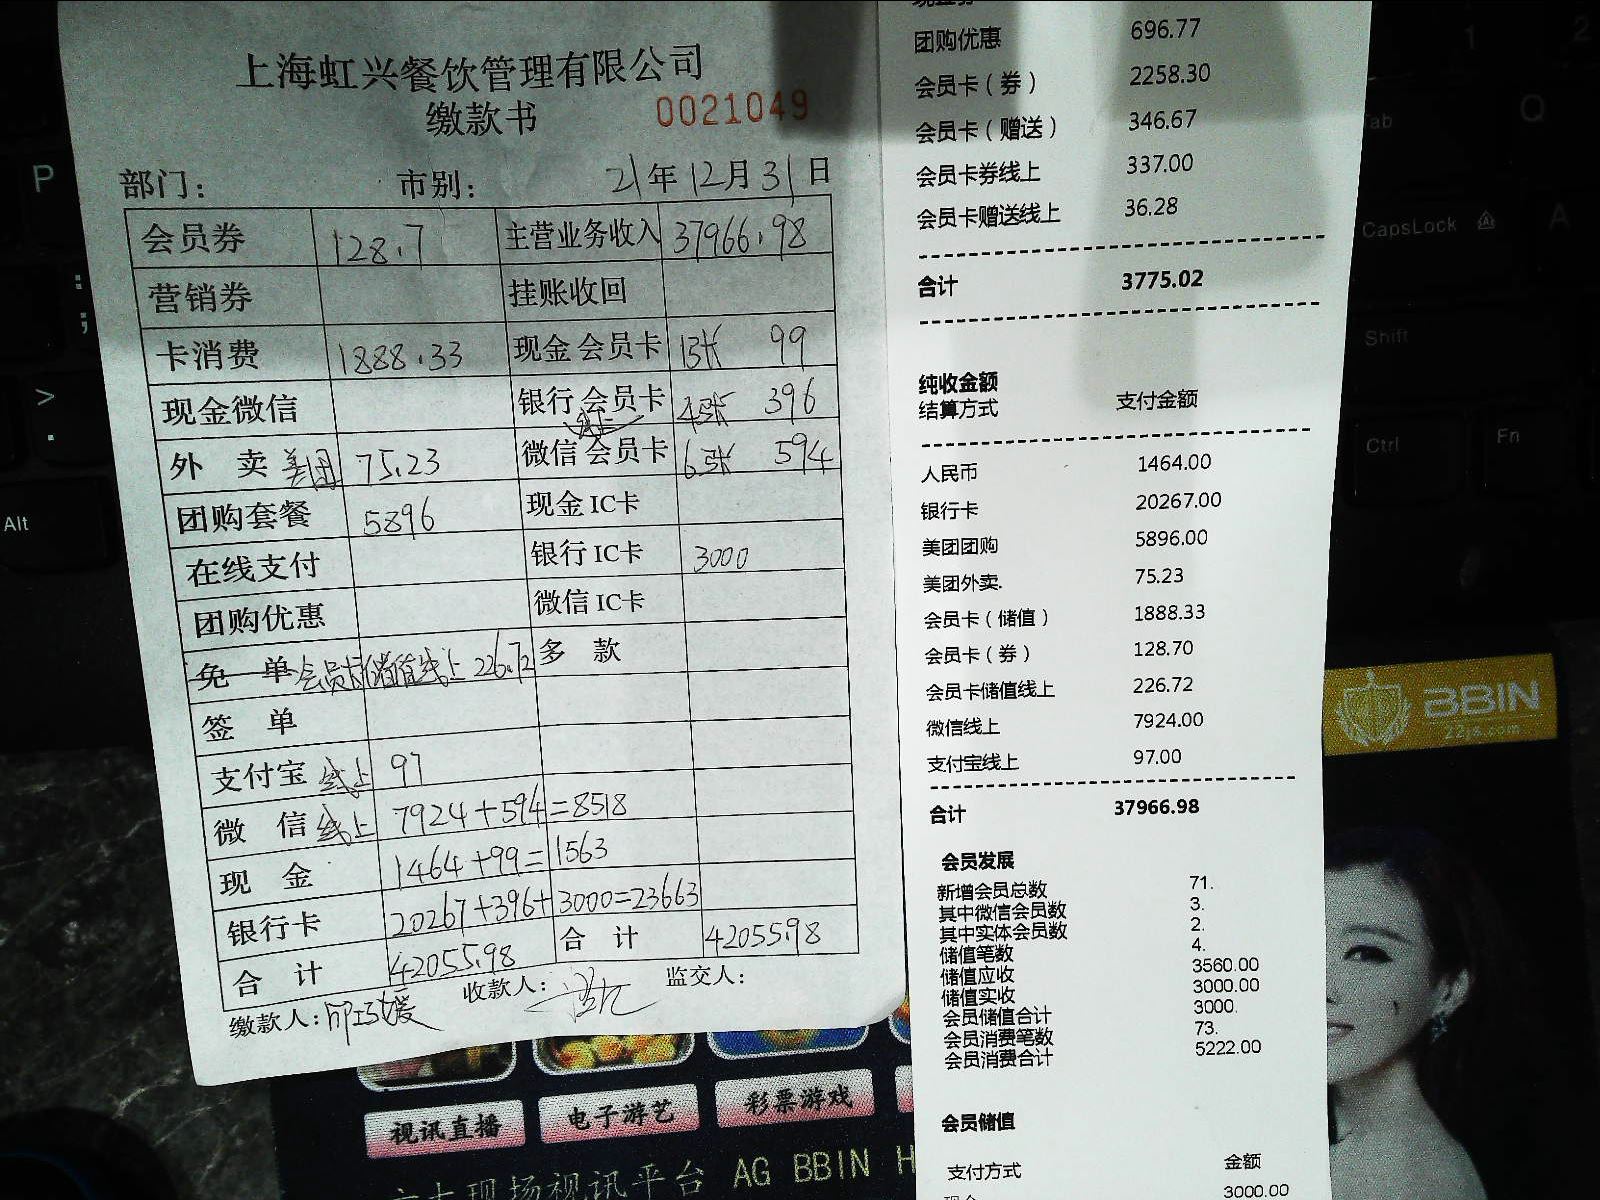 上海虹兴餐饮管理有限公司
缴款书 0021049
部门: 市别: 21年12月31日
会员券 128.7 主营业务收入 37966.98
营销券 挂账收回
卡消费 1888.33 现金会员卡 1张 99
现金微信 银行会员卡 4张 396
线上
外卖 美团 75.23 微信会员卡 6张 594
团购套餐 5896 现金IC卡
在线支付 银行IC卡 3000
团购优惠 微信IC卡
免单 会员卡储值线上 226.72 多款
签单
支付宝 线上 97
微信 线上 7924+594=8518
现金 1464+99=1563
银行卡 20267+396+3000=23663
合计 42055.98 合计 42055.98
缴款人: 收款人: 监交人:
团购优惠 696.77
会员卡(券) 2258.30
会员卡(赠送) 346.67
会员卡券线上 337.00
会员卡赠送线上 36.28
合计 3775.02
纯收金额
结算方式 支付金额
人民币 1464.00
银行卡 20267.00
美团团购 5896.00
美团外卖. 75.23
会员卡(储值) 1888.33
会员卡(券) 128.70
会员卡储值线上 226.72
微信线上 7924.00
支付宝线上 97.00
合计 37966.98
会员发展
新增会员总数 71.
其中微信会员数 3.
其中实体会员数 2.
储值笔数 4.
储值应收 3560.00
储值实收 3000.00
会员储值合计 3000.
会员消费笔数 73.
会员消费合计 5222.00
会员储值
支付方式 金额
现金 3000.00
P
Alt
Tab
Q
CapsLock A
Shift
Ctrl Fn
1 2
BBIN
22js.com
视讯直播 电子游艺 彩票游戏
现场视讯平台 AG BBIN H